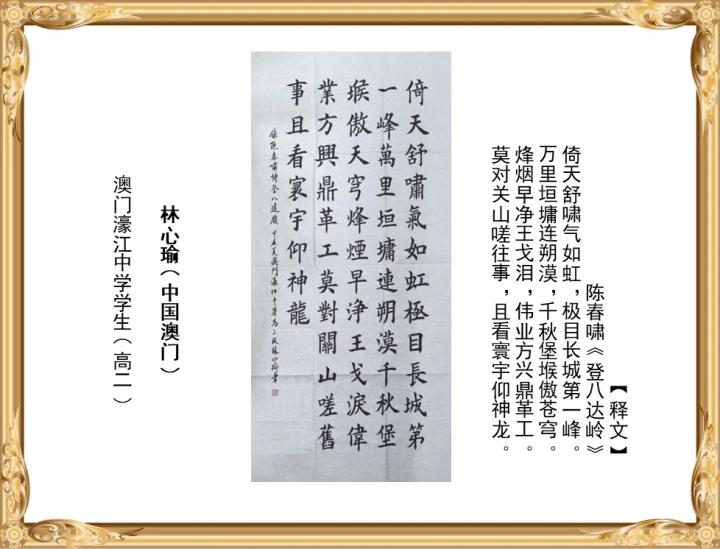 【释文】
陈春啸《登八达岭》
倚天舒啸气如虹，极目长城第一峰。
万里垣墉连朔漠，千秋堡堠傲苍穹。
烽烟早净王戈泪，伟业方兴鼎革工。
莫对关山嗟往事，且看寰宇仰神龙。
倚天舒嘯氣如虹極目長城第
一峰萬里垣墉連朔漠千秋堡
堠傲天穹烽煙早浄王戈淚偉
業方興鼎革工莫對關山嗟舊
事且看寰宇仰神龍
錄陳春嘯詩登八達嶺 甲辰夏澳門濠江中學高二級林心瑜書
林心瑜（中国澳门）
澳门濠江中学学生（高二）